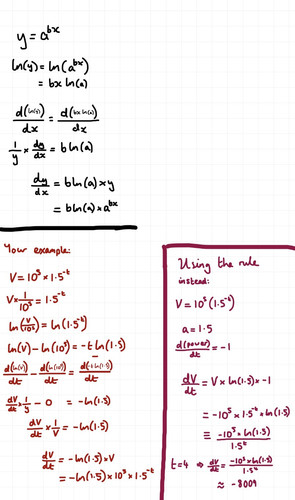 y = a^{bx}
ln(y) = ln(a^{bx})
= bx ln(a)
d(ln(y))/dx = d(bx ln(a))/dx
1/y × dy/dx = b ln(a)
dy/dx = b ln(a) × y
= b ln(a) × a^{bx}
Your example:
V = 10^5 × 1.5^{-t}
V × 1/10^5 = 1.5^{-t}
ln(V/10^5) = ln(1.5^{-t})
ln(V) - ln(10^5) = -t ln(1.5)
d(ln(V))/dt - d(ln(10^5))/dt = d(-t ln(1.5))/dt
dV/dt × 1/y - 0 = -ln(1.5)
dV/dt × 1/V = -ln(1.5)
dV/dt = -ln(1.5) × V
= -ln(1.5) × 10^5 × 1.5^{-t}
Using the rule
instead:
V = 10^5 (1.5^{-t})
a = 1.5
d(power)/dt = -1
dV/dt = V × ln(1.5) × -1
= -10^5 × 1.5^{-t} × ln(1.5)
≡ -10^5 × ln(1.5)/1.5^t
t=4 ⇒ dV/dt = -10^5 × ln(1.5)/1.5^4
≈ -8009